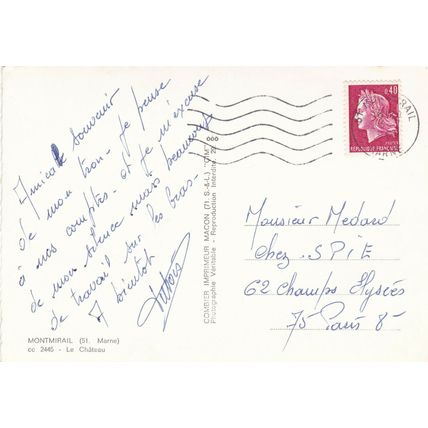 Amical souvenir
de mon trou - je pense
à nos comptes - et je m'excuse
de mon silence mais beaucoup
de travail sur les bras -
A bientôt
MONTMIRAIL (51. Marne)
cc 2445 - Le Château
COMBIER IMPRIMEUR MACON (71. S-&-L.) "CIM"
Photographie Véritable - Reproduction Interdite
0,40
REPUBLIQUE FRANÇAISE
Monsieur Medard
Chez. SPIE
62 Champs Elysées
75 Paris 8e